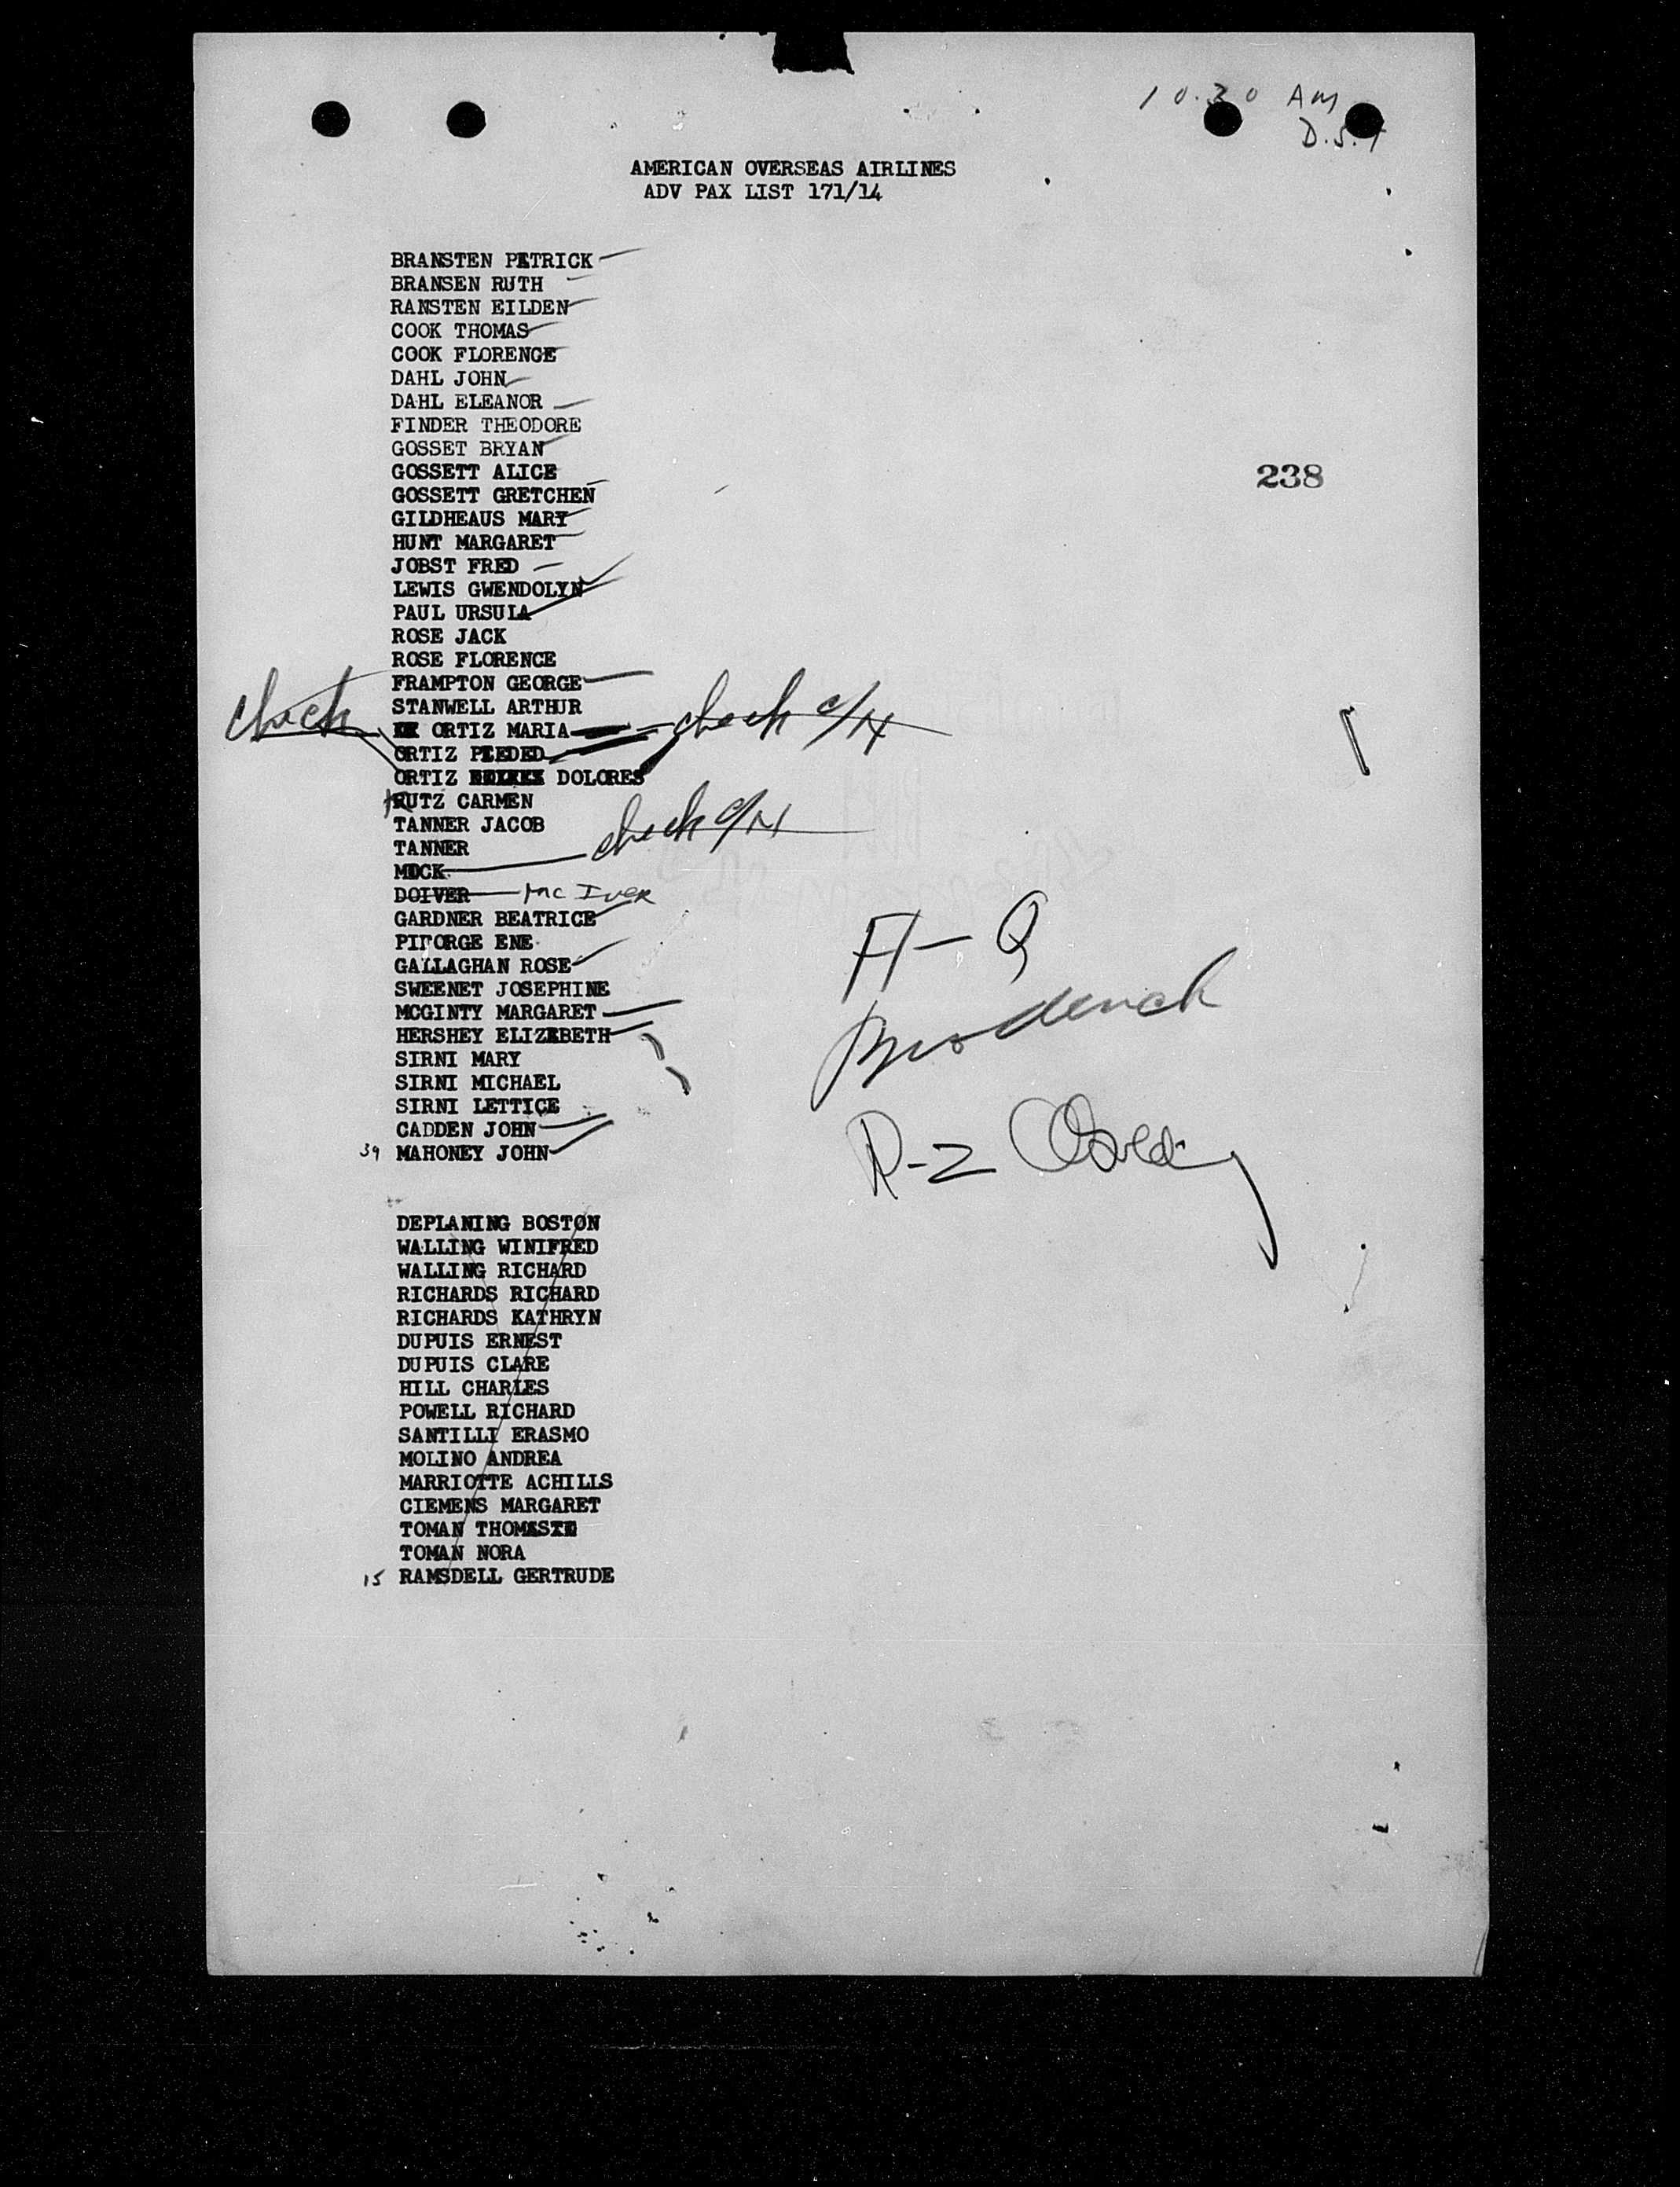 10.30 AM
D.S.T
AMERICAN OVERSEAS AIRLINES
ADV PAX LIST 171/14
BRANSTEN PATRICK
BRANSEN RUTH
RANSTEN EILDEN
COOK THOMAS
COOK FLORENCE
DAHL JOHN
DAHL ELEANOR
FINDER THEODORE
GOSSET BRYAN
GOSSETT ALICE
238
GOSSETT GRETCHEN
GILDHEAUS MARY
HUNT MARGARET
JOBST FRED
LEWIS GWENDOLYN
PAUL URSULA
ROSE JACK
ROSE FLORENCE
FRAMPTON GEORGE
STANWELL ARTHUR
check ORTIZ MARIA check C/N
ORTIZ PIEDED
ORTIZ DOLORES
RUTZ CARMEN
TANNER JACOB
TANNER check C/N
MOCK
DOIVER Mc Iver
GARDNER BEATRICE
PITORGE ENE
GALLAGHAN ROSE
A-Q
SWEENET JOSEPHINE
MCGINTY MARGARET
Broderick
HERSHEY ELIZABETH
SIRNI MARY
SIRNI MICHAEL
SIRNI LETTICE
CADDEN JOHN
39 MAHONEY JOHN
R-Z
DEPLANING BOSTON
WALLING WINIFRED
WALLING RICHARD
RICHARDS RICHARD
RICHARDS KATHRYN
DUPUIS ERNEST
DUPUIS CLARE
HILL CHARLES
POWELL RICHARD
SANTILLI ERASMO
MOLINO ANDREA
MARRIOTTE ACHILLS
CIEMENS MARGARET
TOMAN THOMAS
TOMAN NORA
15 RAMSDELL GERTRUDE